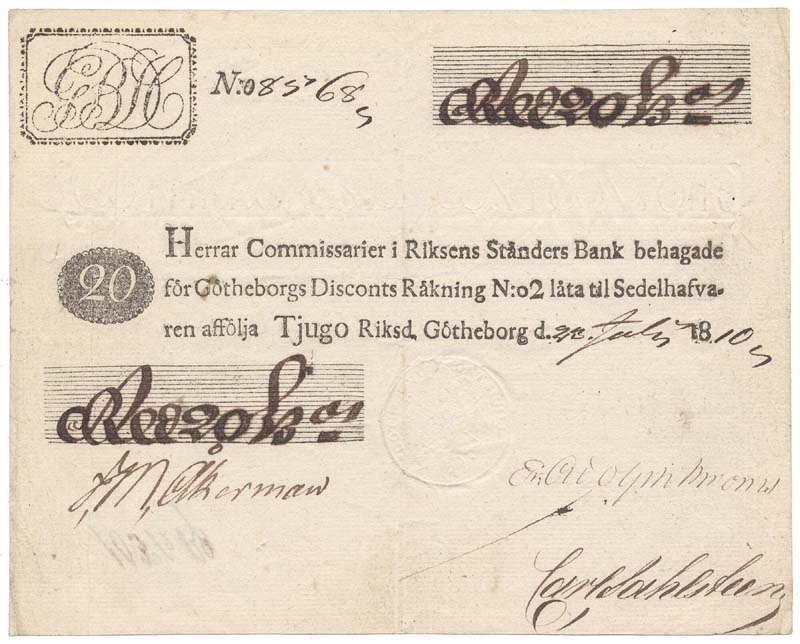 N:o 8568
Rdr 20 Bco
Herrar Commissarier i Riksens Stånders Bank behagade
20
för Götheborgs Disconts Råkning N:o2 låta til Sedelhafva-
ren affölja Tjugo Riksd. Götheborg d. 22 July 1810
Rdr 20 Bco
J, M, Åkerman
Carl Sahlsteen